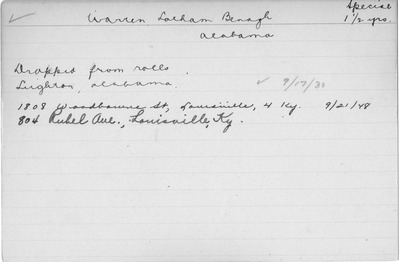 ✓ Warren Latham Benagh Special
Alabama 1 1/2 yrs.
Dropped from rolls.
Lughron, Alabama. ✓ 9/17/30
1808 Woodbourne St, Louisville, 4 Ky. 9/21/48
804 Rubel Ave., Louisville, Ky.